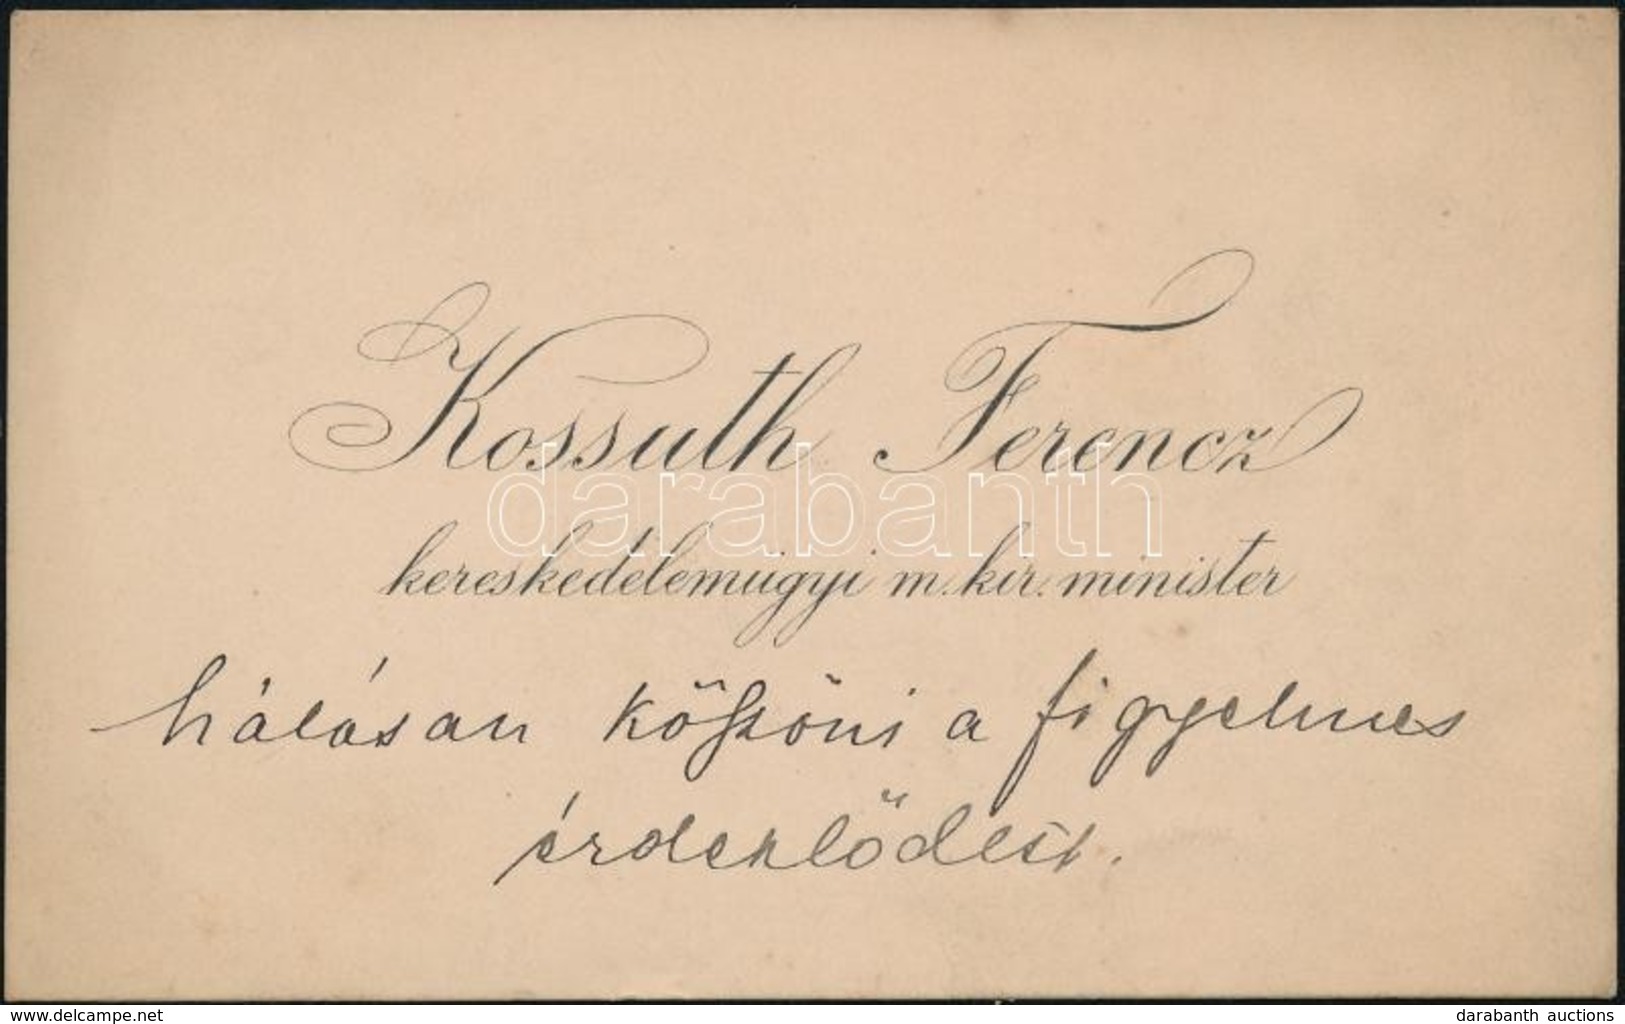 Kossuth Ferencz
darabanth
kereskedelemügyi m. kir. minister
hálásan köszöni a figyelmes
érdeklődést.
www.delcampe.net
darabanth auctions